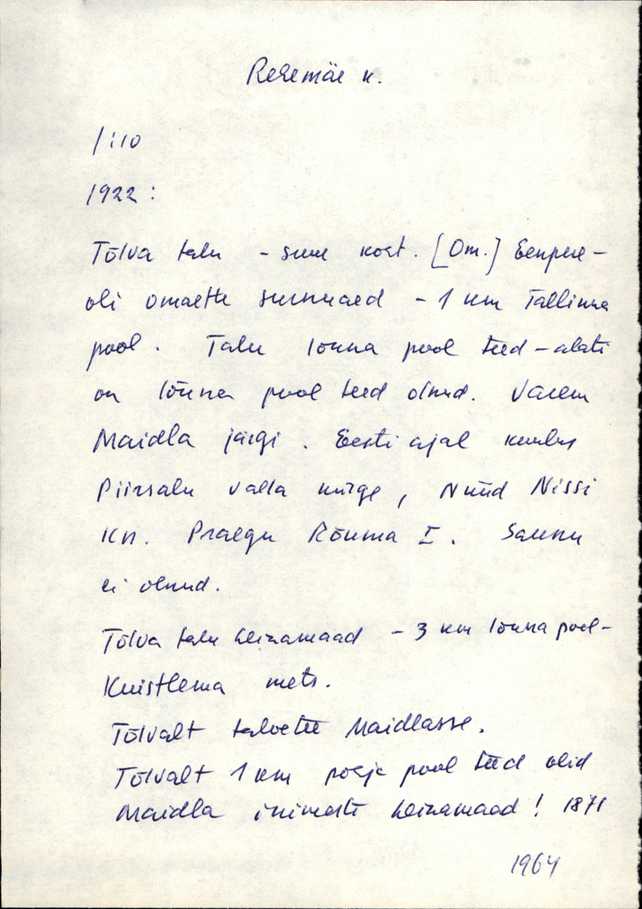 Rehemäe k.
1:10
1922:
Tõlva talu - suur koht. [Om.] Eenpere -
oli omaette surnuaed - 1 km Tallinna
pool. Talu lõuna pool teed - alati
on lõuna pool teed olnud. Varem
Maidla järgi. Eesti ajal kuulus
Piirsalu valla külge, Nüüd Nissi
kn. Praegu Rõuma I. Saunu
ei olnud.
Tõlva talu heinamaad - 3 km lõuna pool -
Kuistlema mets.
Tõlvalt talvetee Maidlasse.
Tõlvalt 1 km põhja pool teed olid
Maidla inimeste heinamaad! 1871
1964